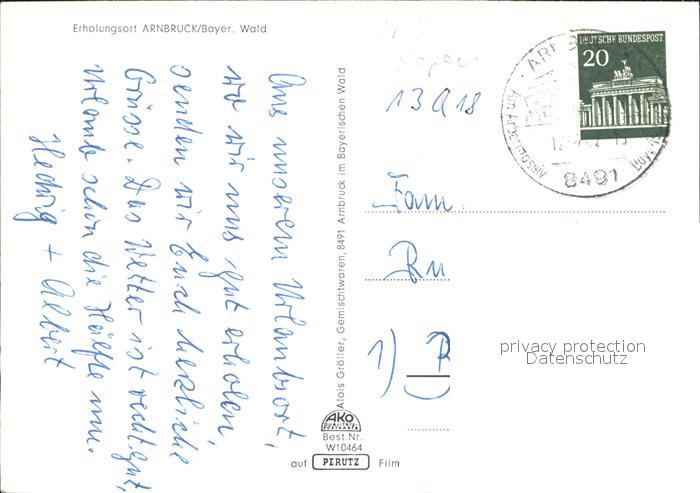 Erholungsort ARNBRUCK/Bayer. Wald
Aus unserem Urlaubsort,
wo wir uns gut erholen,
senden wir Euch herzliche
Grüsse. Das Wetter ist recht gut,
Urlaub schon die Hälfte um.
Hedwig + Albert
Alois Gröller, Gemischtwaren, 8491 Arnbruck im Bayerischen Wald
AKO
Best.Nr.
W10464
auf PERUTZ Film
DEUTSCHE BUNDESPOST
20
8491
13 a 18
Fam.
Ru
1) B
privacy protection
Datenschutz